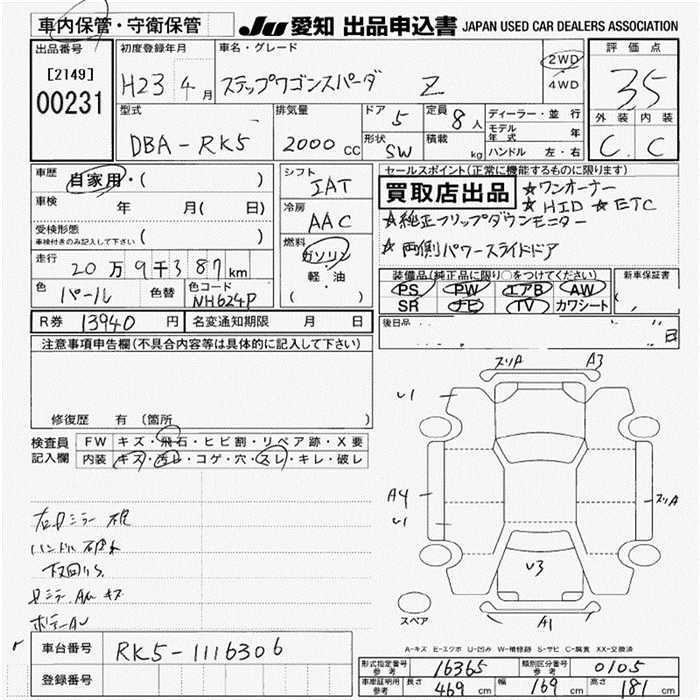 車内保管・守衛保管
JU 愛知 出品申込書 JAPAN USED CAR DEALERS ASSOCIATION
出品番号
[2149]
00231
初度登録年月
H23 4月
車名・グレード
ステップワゴンスパーダ Z
2WD
・
4WD
評価点
3.5
外装 内装
C C
型式
DBA-RK5
排気量
2000 cc
ドア 5
形状 SW
定員 8人
積載 kg
ディーラー・並行
モデル年式 年
ハンドル 左・右
車歴 自家用・( )
車検 年 月( 日)
受検形態 ( )
車検付きのみ記入して下さい
走行 20万9千387km
色 パール 色替 色コード NH624P
シフト
IAT
冷房
AAC
燃料
ガソリン
・
軽・油
( )
セールスポイント(正常に機能するものに限ります)
買取店出品 ☆ワンオーナー
☆HID ☆ETC
☆純正フリップダウンモニター
☆両側パワースライドドア
装備品(純正品に限り○をつけてください) 新車保証書
PS PW エアB AW
SR ナビ TV カワシート
後日品
日
R券 13940円 名変通知期限 月 日
注意事項申告欄(不具合内容等は具体的に記入して下さい)
修復歴 有 (箇所 )
検査員記入欄
FW キズ・飛石・ヒビ割・リペア跡・X要
内装 キズ・汚レ・コゲ・穴・スレ・キレ・破レ
ハンドル
下回りS
ミラー AW キズ
ボデーAU
スリA A3
U1
A4
U1
スリA
U3
A1
スペア
A-キズ E-エクボ U-凹み W-補修跡 S-サビ C-腐食 XX-交換済
車台番号 RK5-1116306
登録番号
形式指定番号 参考 16365 類別区分番号 参考 0105
車庫証明用 参考 長さ 469 cm 幅 169 cm 高さ 181 cm